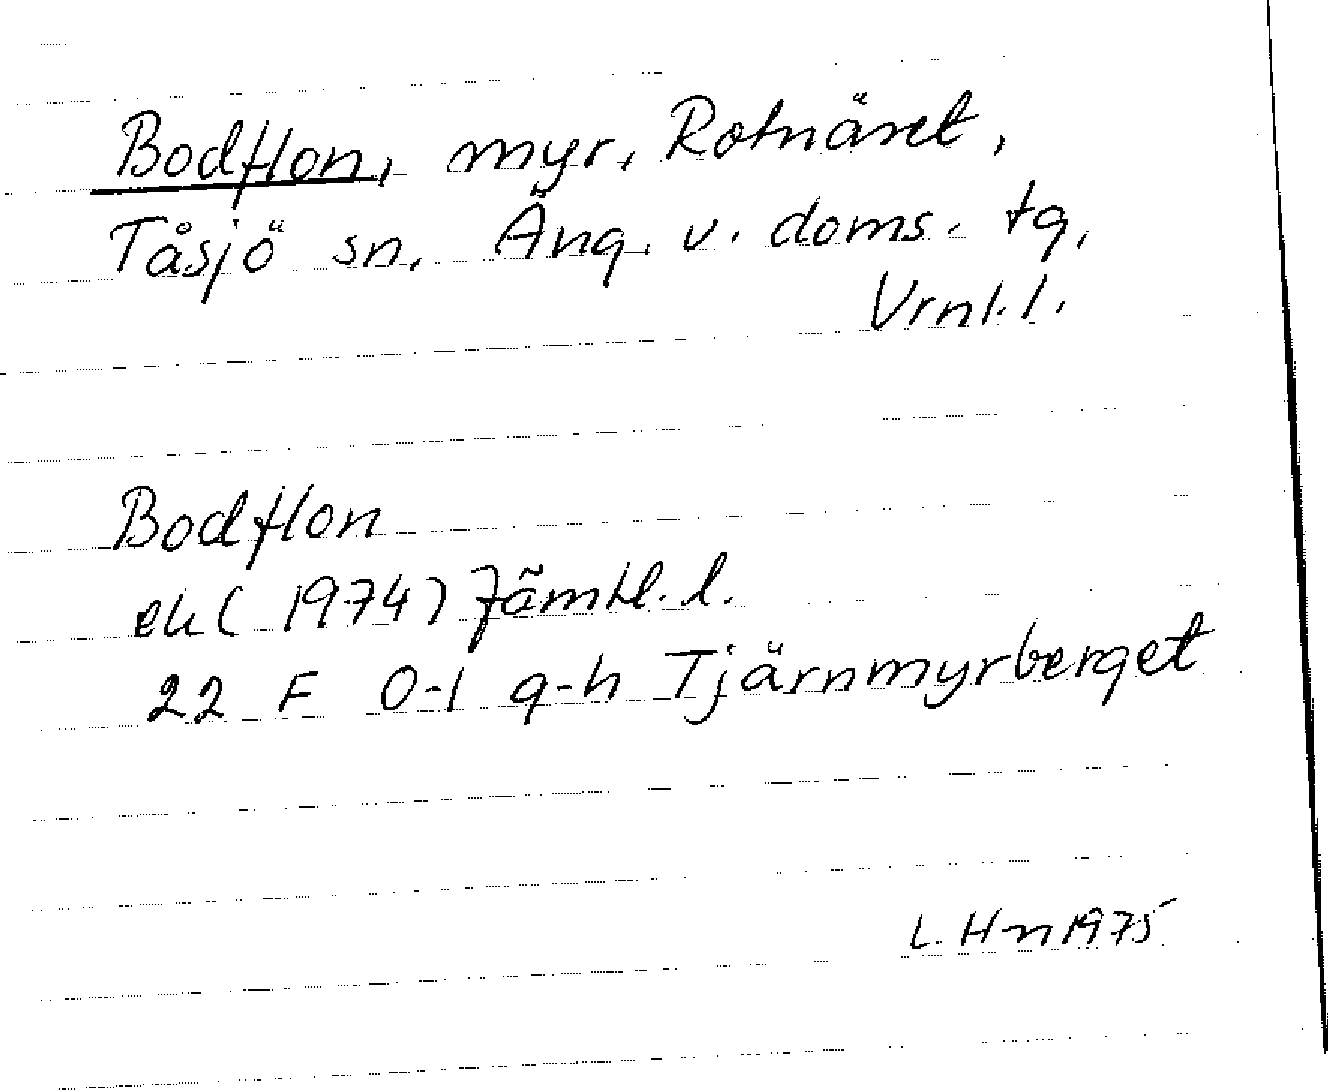 Bodflon, myr, Rotnäset,
Tåsjö sn, Ång. v. doms. tg,
Vrnl. l.
Bodflon
ek (1974) Jämtl. l.
22 F 0-1 g-h Tjärnmyrberget
L. Hn 1975